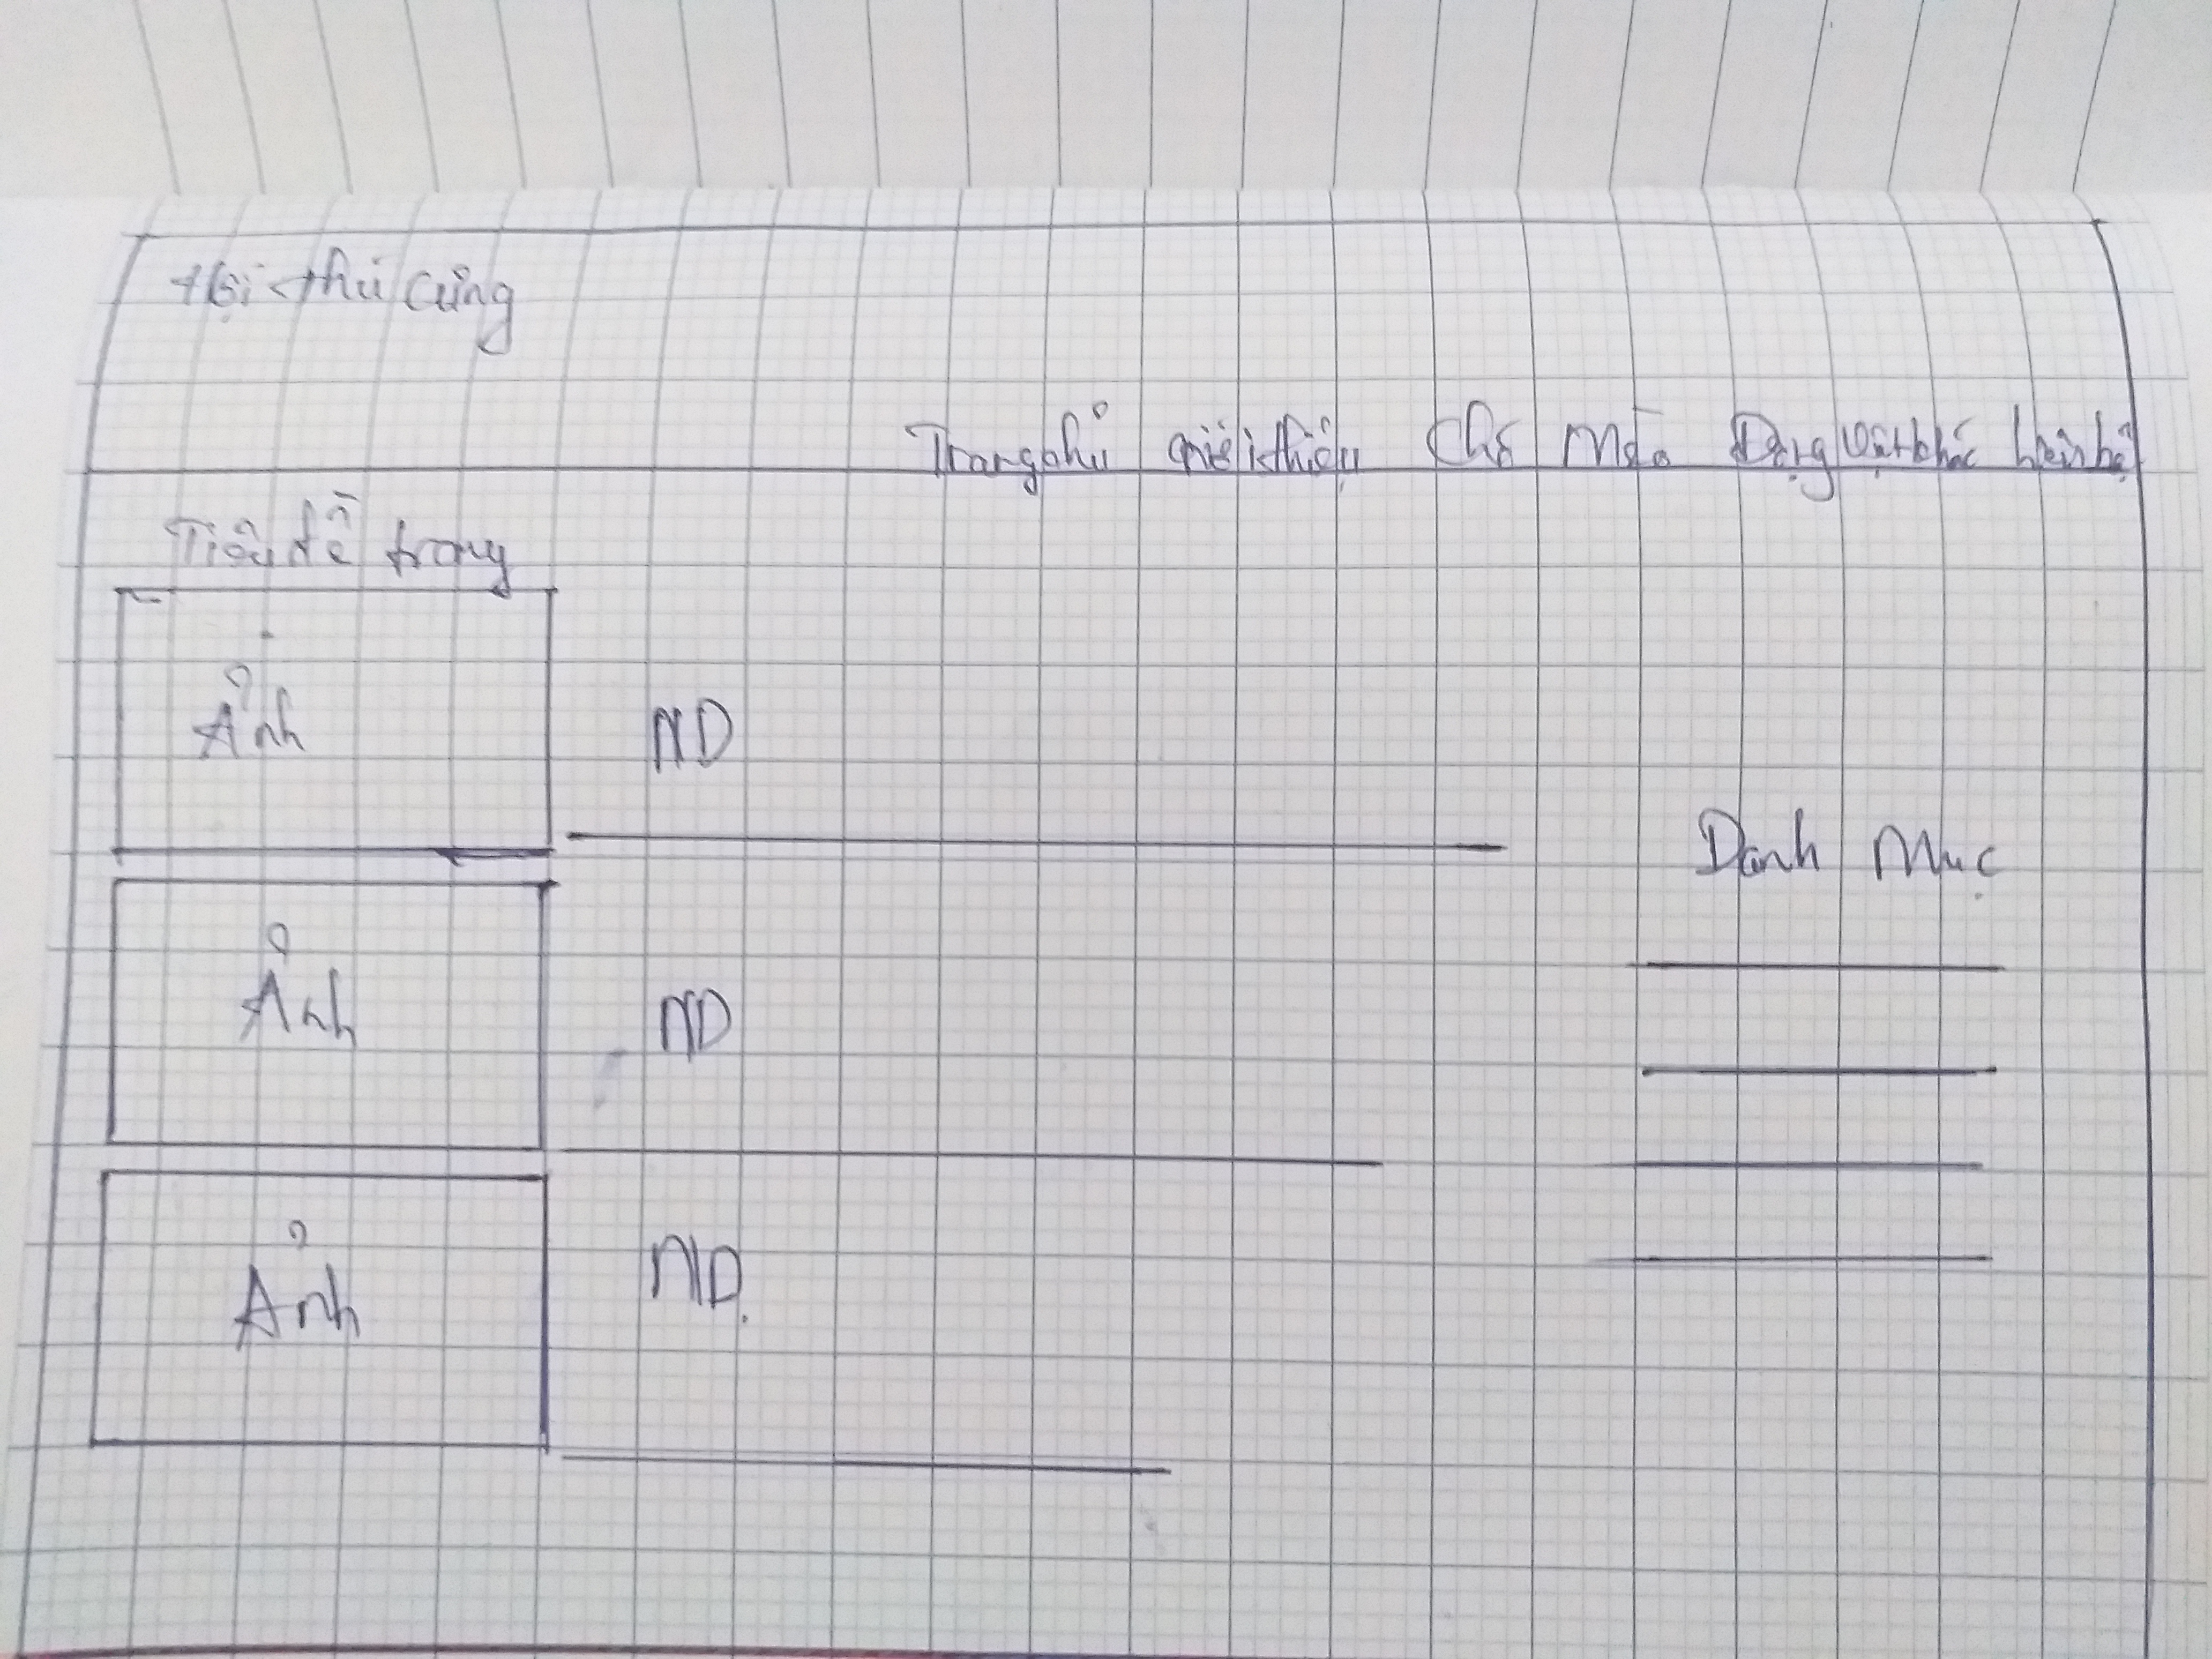 Hội thú cưng
Trang chủ giới thiệu Chó Mèo Động vật khác liên hệ
Tiêu đề trang
Ảnh
ND
Danh Mục
Ảnh
ND
Ảnh
ND.